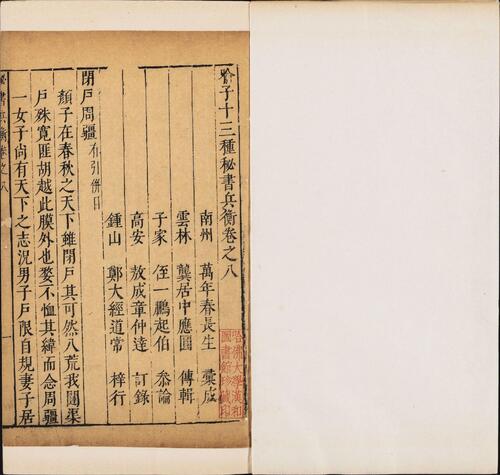 喻子十三種秘書兵衡卷之八
南州 萬年春長生 彙成
雲林 龔居中應圓 傳輯
子家 侄一鵬起伯 叅論
高安 敖成章仲達 訂錄
鍾山 鄭大經道常 梓行
閉戶周疆 有引併目
顏子在春秋之天下雖閉戶其可然八荒我闥渠
戶殊寬匪胡越此膜外也婺不恤其緯而念周疆
一女子尚有天下之志况男子戶限自規妻子居
秘書兵衡卷之八
一
哈佛大學漢和
圖書館珍藏印